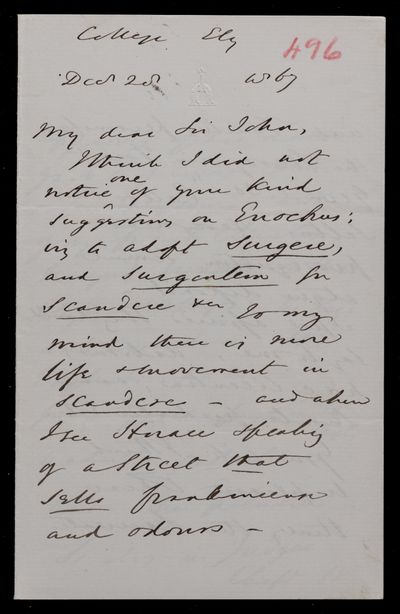 College Ely
496
Decr 28 1867
My dear Sir John,
I think I did not
one
notice of your kind
suggestions on Enochus;
viz to adopt Surgere,
and Surgentem for
Scandere &c To my
mind there is more
life & movement in
scandere – and when
I see Horace speaking
of a Street that
sells frankincense
and odours –